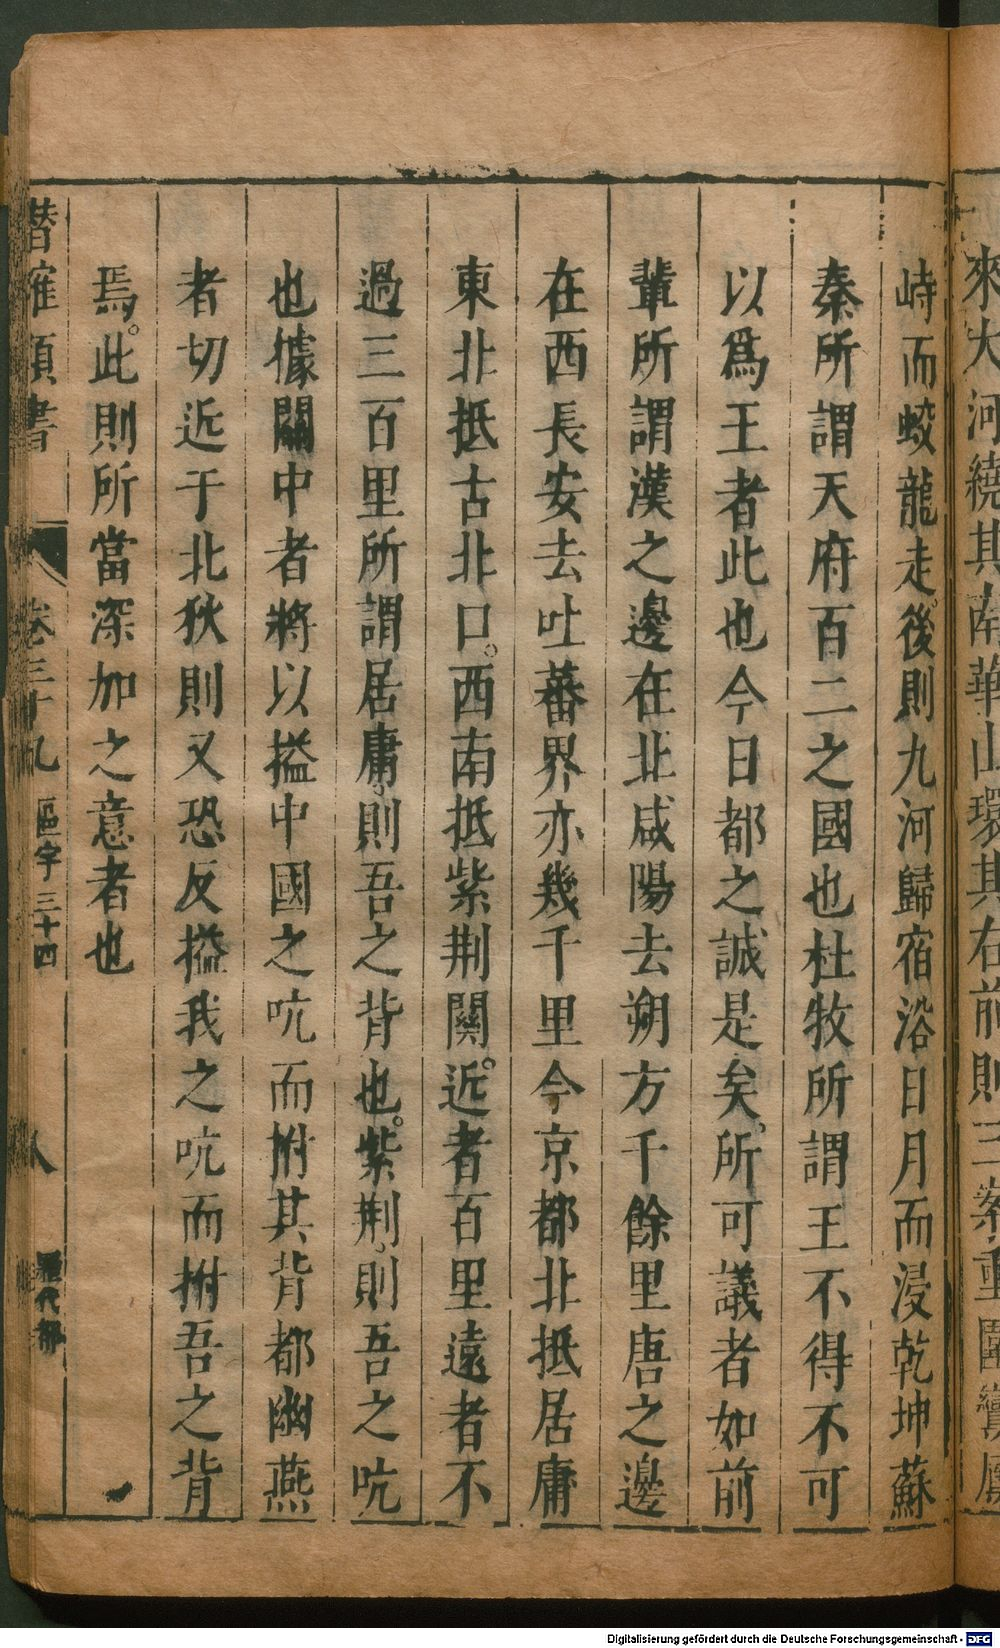 來大河繞其南華山環其右前則三案重圍鸞鳳
峙而蛟龍走後則九河歸宿浴日月而浸乾坤蘇
秦所謂天府百二之國也杜牧所謂王不得不可
以爲王者此也今日都之誠是矣所可議者如前
輩所謂漢之邊在北咸陽去朔方千餘里唐之邊
在西長安去吐蕃界亦幾千里今京都北抵居庸
東北抵古北口西南抵紫荆關近者百里遠者不
過三百里所謂居庸則吾之背也紫荆則吾之吭
也據關中者將以搤中國之吭而拊其背都幽燕
者切近于北狄則又恐反搤我之吭而拊吾之背
焉此則所當深加之意者也
潛確類書 卷三十九 區宇三十四 八
Digitalisierung gefördert durch die Deutsche Forschungsgemeinschaft - DFG